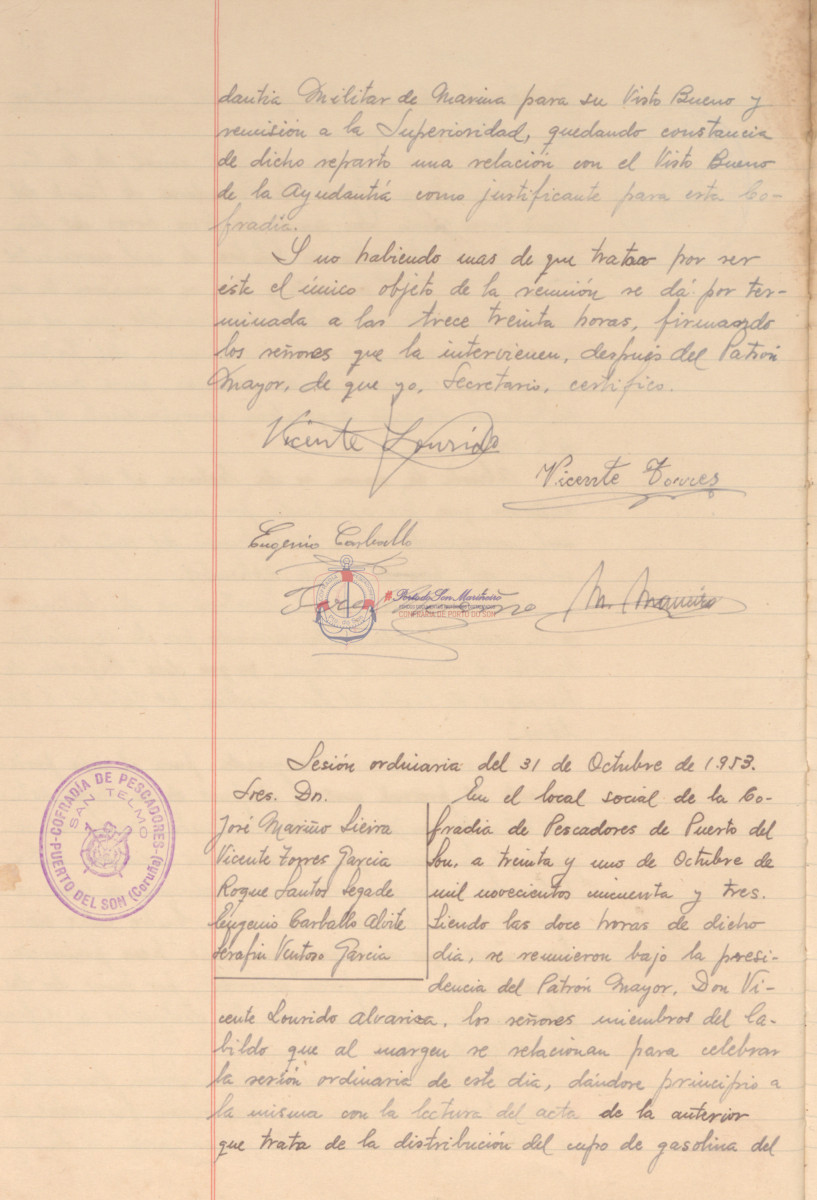 dantia Militar de Marina para su Visto Bueno y
remisión a la Superioridad, quedando constancia
de dicho reparto una relación con el Visto Bueno
de la Ayudantía como justificante para esta Co-
fradia.
Y no habiendo mas de que tratar por ser
éste el único objeto de la reunión se dá por ter-
minada a las trece treinta horas, firmando
los señores que la intervienen, después del Patrón
Mayor, de que yo, Secretario, certifico.
Vicente Lourido
Vicente Torres
Eugenio Carballo
Porto do Son Mariñeiro
CONFRARÍA DE PORTO DO SON
M. Maneiro
Sesión ordinaria del 31 de Octubre de 1.953.
Sres. Dn.
José Mariño Sieira
Vicente Torres Garcia
Roque Santos Segade
Eugenio Carballo Alvite
Serafin Ventoso Garcia
COFRADÍA DE PESCADORES
SAN TELMO
PUERTO DEL SON (Coruña)
En el local social de la Co-
fradia de Pescadores de Puerto del
Son, a treinta y uno de Octubre de
mil novecientos cincuenta y tres.
Siendo las doce horas de dicho
dia, se reunieron bajo la presi-
dencia del Patrón Mayor, Don Vi-
cente Lourido Alvariza, los señores miembros del Ca-
bildo que al margen se relacionan para celebrar
la sesión ordinaria de este dia, dándose principio a
la misma con la lectura del acta de la anterior
que trata de la distribución del cupo de gasolina del